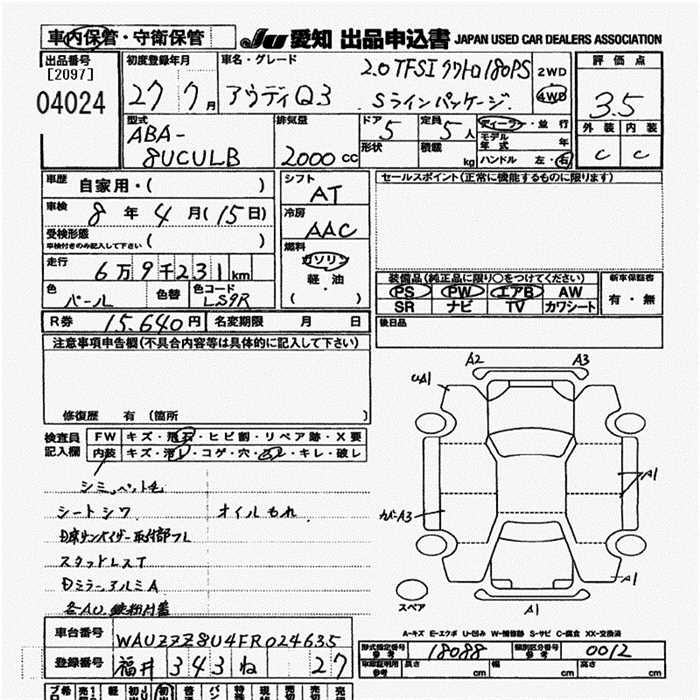 車内保管・守衛保管 JU 愛知 出品申込書 JAPAN USED CAR DEALERS ASSOCIATION
出品番号 初度登録年月 車名・グレード 評価点
[2097] 2.0 TFSI クワトロ 180PS 2WD
04024 27 7月 アウディQ3 Sラインパッケージ 4WD 3.5
型式 排気量 ドア 定員 ディーラー・並行 外装 内装
ABA- 5 5人 モデル年式 年
8UCULB 2000cc 形状 積載 kg ハンドル 左・右 C C
車歴 自家用・( ) シフト セールスポイント(正常に機能するものに限ります)
AT
車検 8年4月(15日) 冷房
受検形態 AAC
車検付きのみ記入して下さい ( ) 燃料
走行 6万9千231km ガソリン 装備品(純正品に限り○をつけてください) 新車保証書
軽・油 PS PW エアB AW 有・無
色 色替 色コード ( ・ ) SR ナビ TV カワシート
パール LS9R
R券 15,640円 名変期限 月 日 後日品
注意事項申告欄(不具合内容等は具体的に記入して下さい)
A2 A3
UA1
修復歴 有 (箇所 )
検査員 FW キズ・飛石・ヒビ割・リペア跡・X要
記入欄 内装 キズ・汚レ・コゲ・穴・スレ・キレ・破レ
シミ、ペット毛 A1
シートシワ オイルもれ カバーA3
D席サンバイザー取付部フレ
スタッドレスT
DミラーアルミA A1
各AU 鉄粉付着 スペア A1
A-キズ E-エクボ U-凹み W-補修跡 S-サビ C-腐食 XX-交換済
車台番号 WAUZZZ8U4FR024635 型式指定番号 参考 18088 類別区分番号 参考 0012
登録番号 福井 343 ね 27 車庫証明用 参考 長さ cm 幅 cm 高さ cm